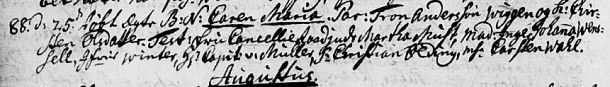 88. D: 25de døbt dyte B: N: Caren Maria. Par: Tron Andersen Wiggen og Kir-
sten Olsdatter. Test: Frue Cancellieraadinde Martha Must, Mad: Inge Johanna Wens-
sell, Jfr: Winter, Hr Capit: v. Müller, Sr. Christian Eeding, Mr. Carsten Wahl.
Augustus.